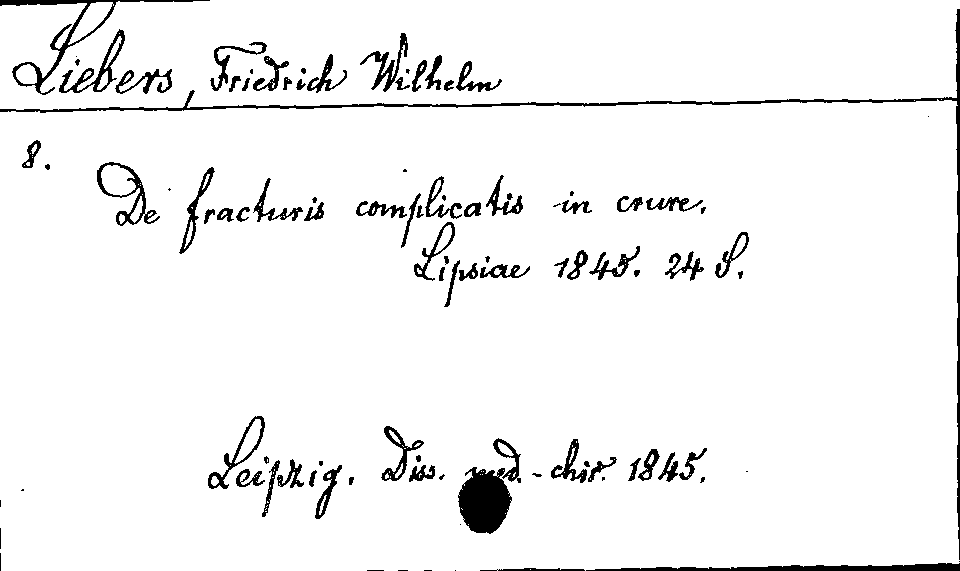 Liebers, Friedrich Wilhelm
8.
De fracturis complicatis in crure.
Lipsiae 1845. 24 S.
Leipzig. Diss. med.-chir. 1845.